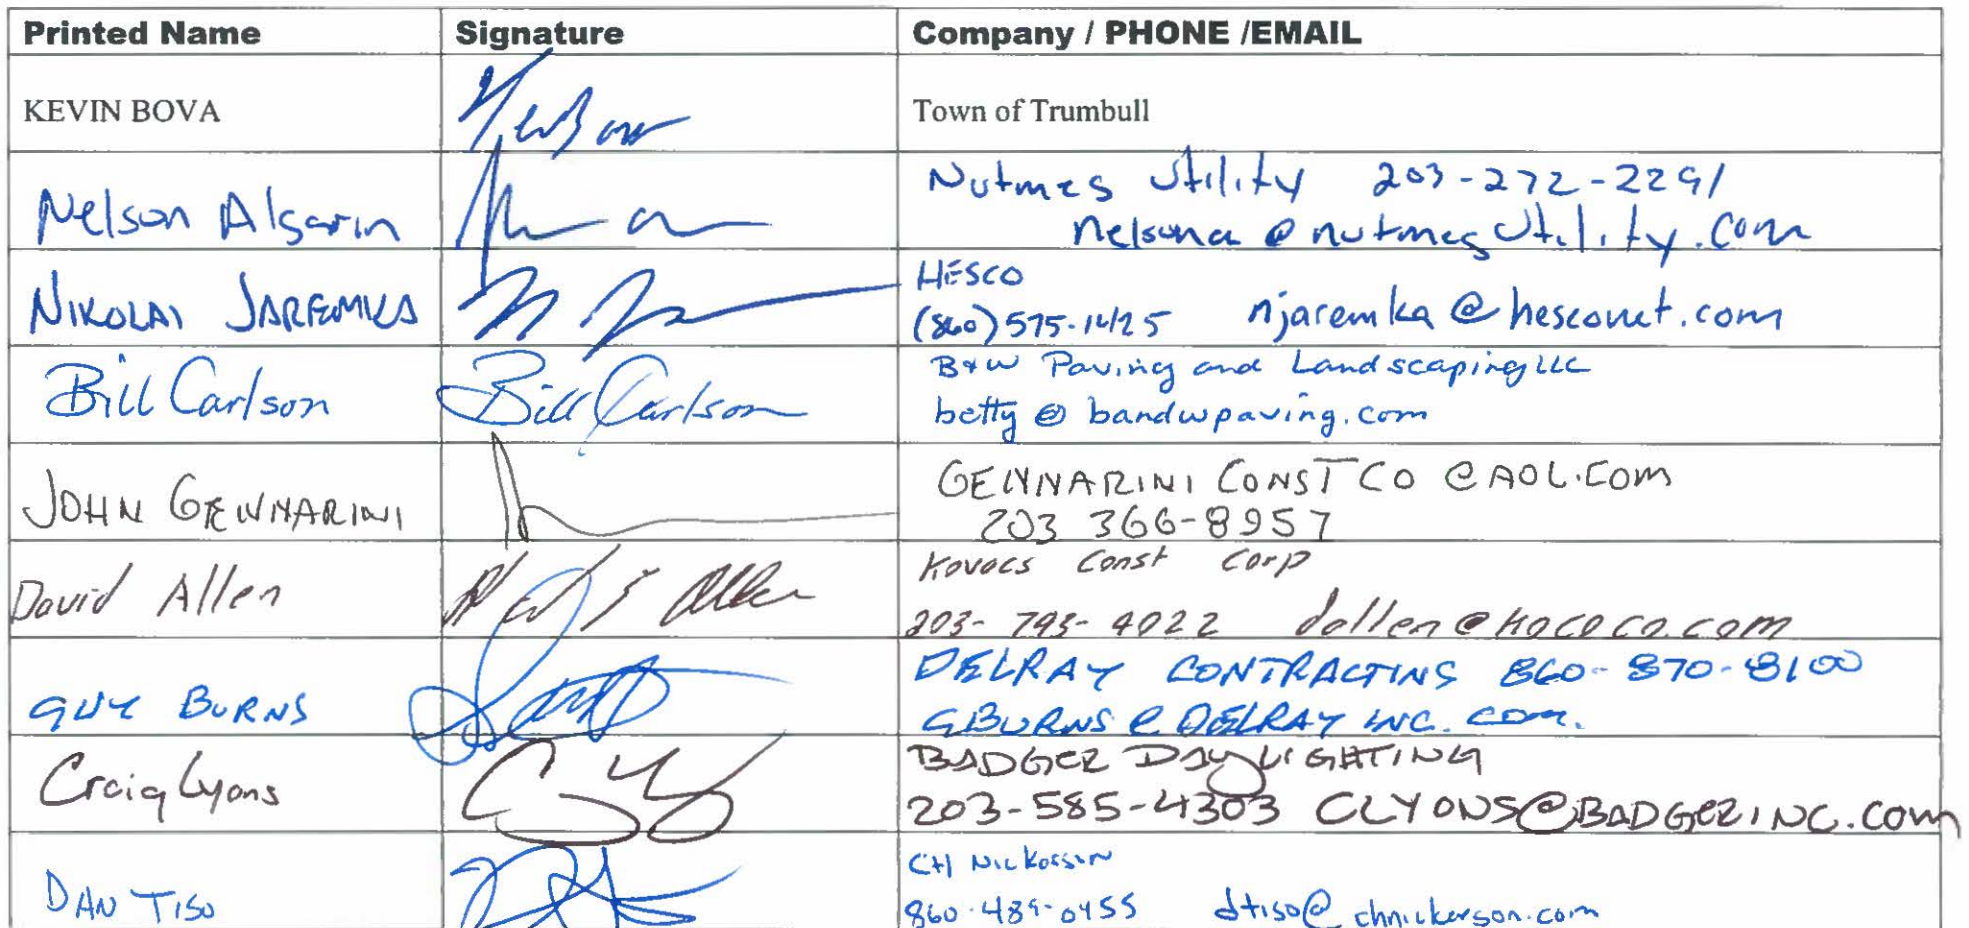 Printed Name Signature Company / PHONE /EMAIL
KEVIN BOVA Town of Trumbull
Nelson Algarin
Nutmeg Utility 203-272-2291
nelsona @ nutmegutility.com
NIKOLAI JAREMKA
HESCO
(860) 575-1425 njaremka@hesconet.com
Bill Carlson Bill Carlson
B+W Paving and Landscaping LLC
betty @ bandwpaving.com
JOHN GENNARINI
GENNARINI CONST CO @ AOL.COM
203 366-8957
David Allen
Kovacs Const Corp
203-793-4022 dallen@kococo.com
GUY BURNS
DELRAY CONTRACTING 860-870-8100
GBURNS @ DELRAY INC. COM.
Craig Lyons
BADGER DAYLIGHTING
203-585-4303 CLYONS@BADGERINC.COM
DAN TISO
CH Nickerson
860-489-0455 dtiso@chnickerson.com